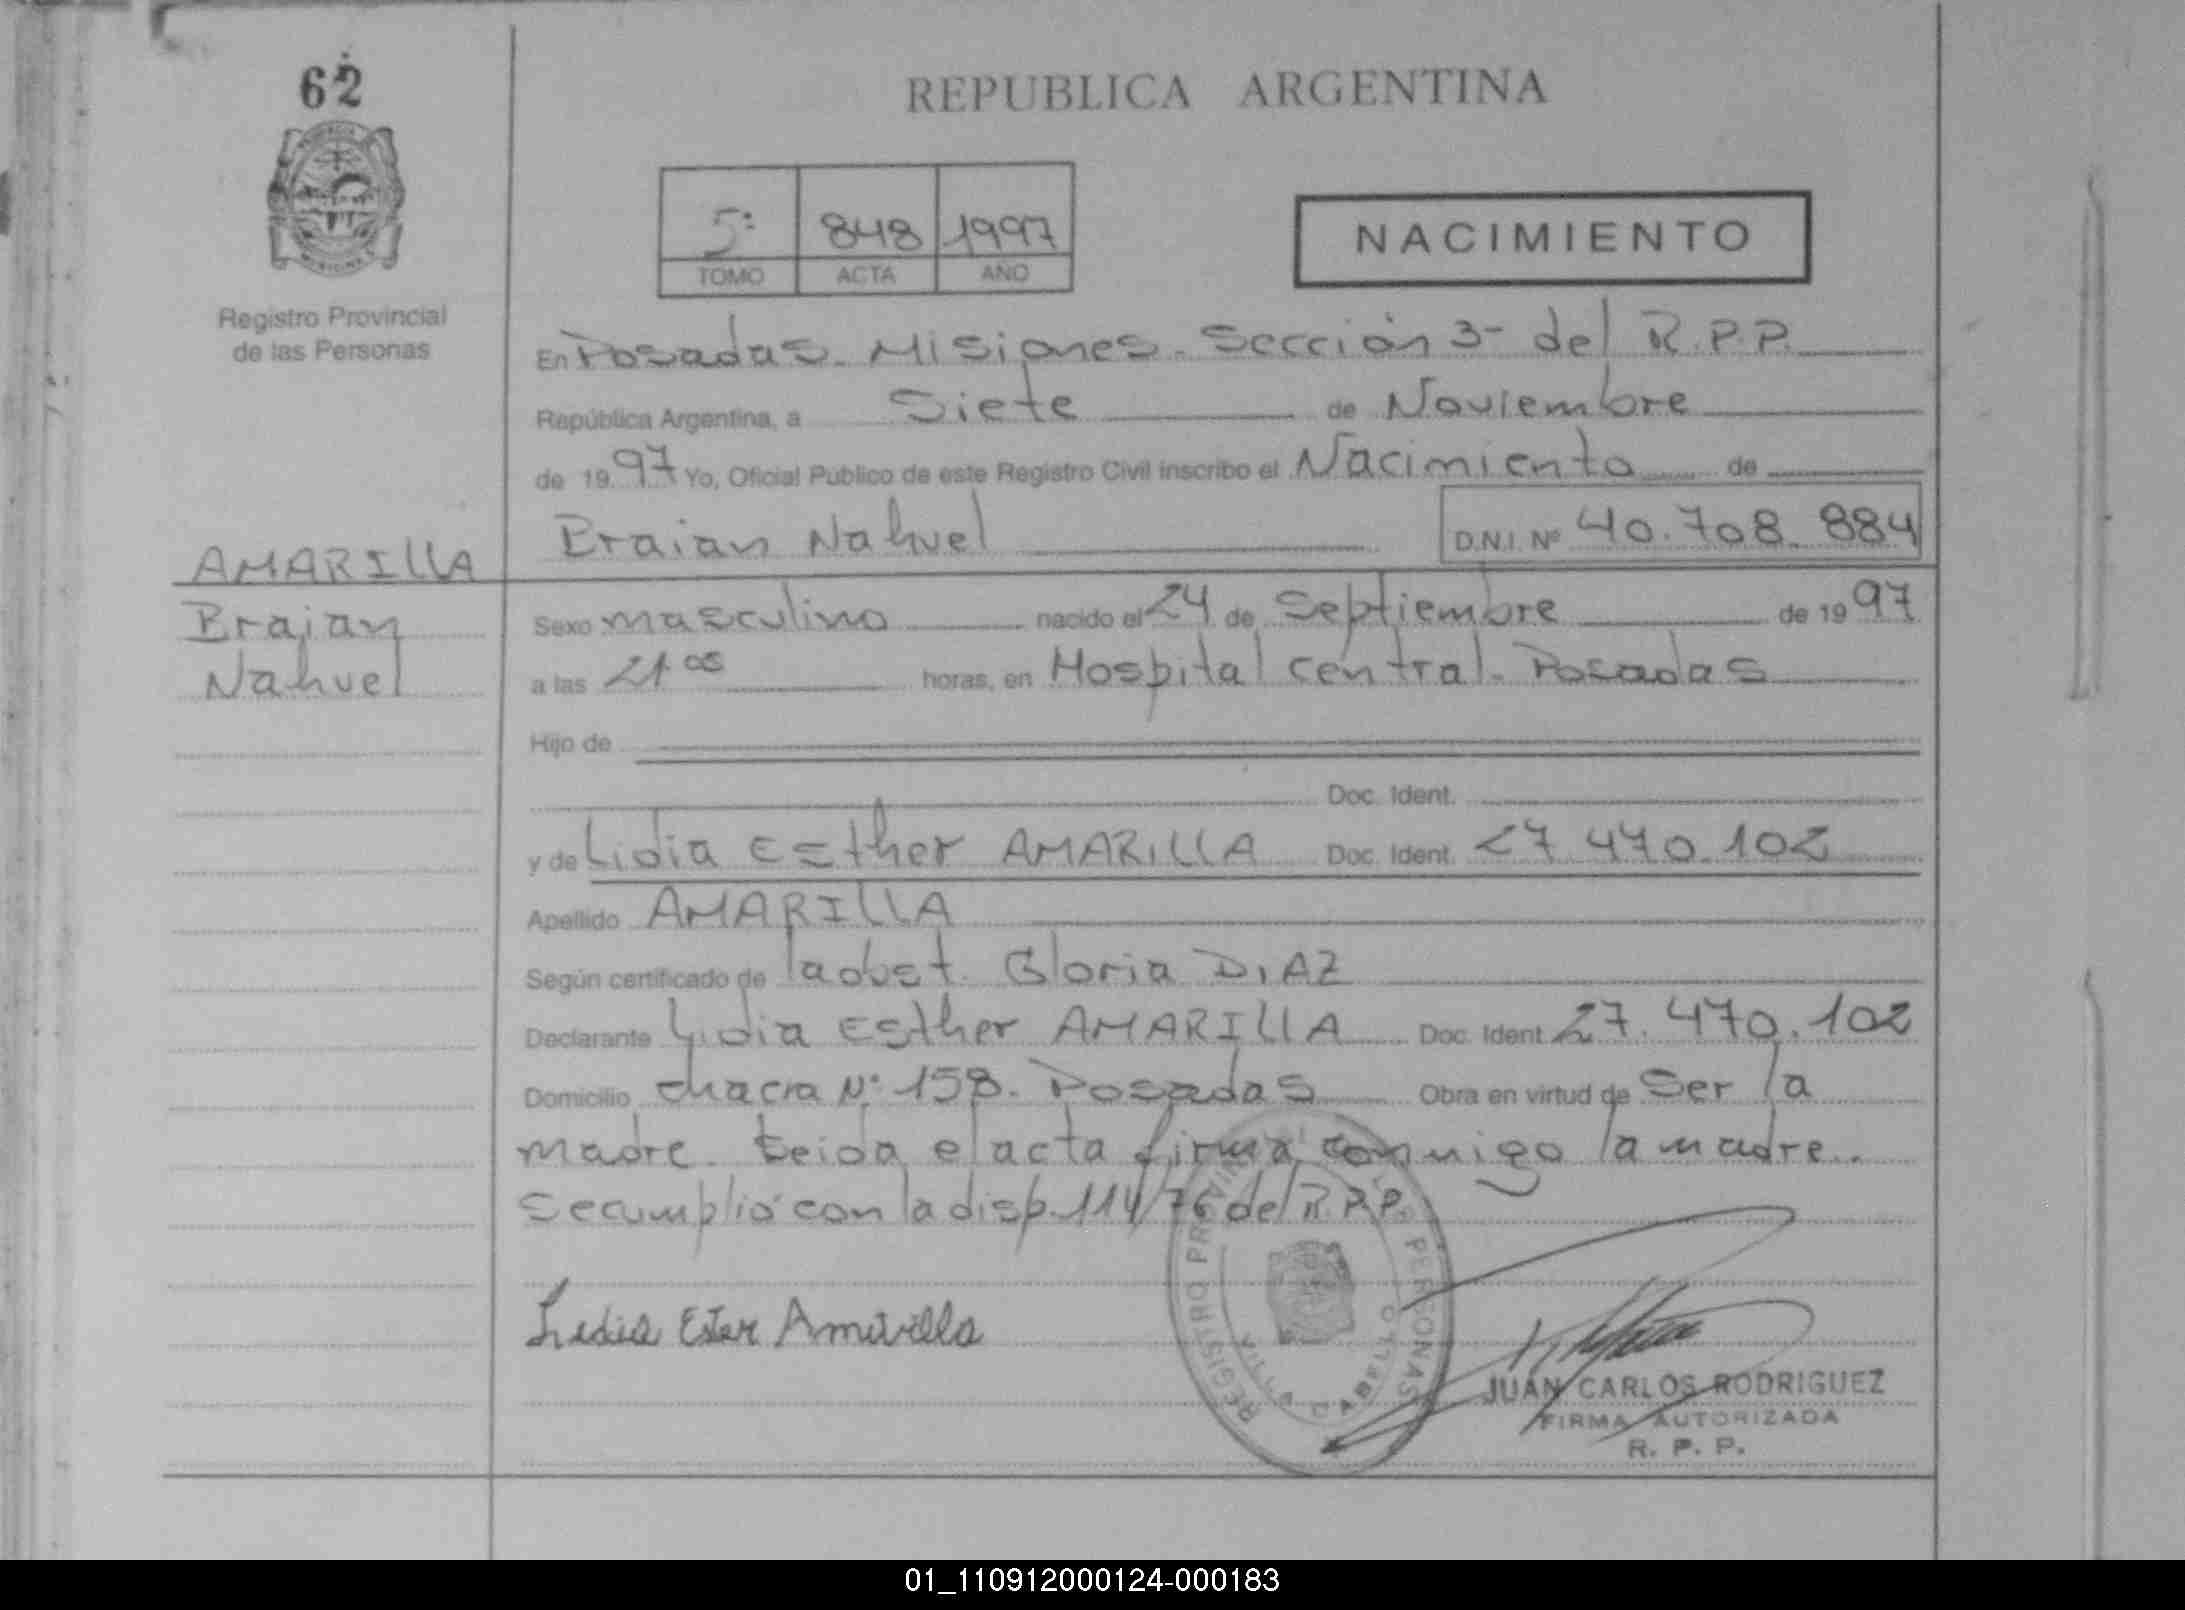 62
REPUBLICA ARGENTINA
PROVINCIA
MISIONES
Registro Provincial
de las Personas
5º 848 1997
TOMO ACTA AÑO
NACIMIENTO
En Posadas. Misiones. Sección 3ª del R.P.P.
República Argentina, a Siete de Noviembre
de 1997 Yo, Oficial Público de este Registro Civil inscribo el Nacimiento de
Braian Nahuel D.N.I. Nº 40.708.884
AMARILLA
Braian
Nahuel
Sexo masculino nacido el 24 de Septiembre de 1997
a las 21.05 horas, en Hospital central. Posadas
Hijo de
Doc. Ident.
y de Lidia Esther AMARILLA Doc. Ident. 27.470.102
Apellido AMARILLA
Según certificado de la obst. Gloria DIAZ
Declarante Lidia Esther AMARILLA Doc. Ident. 27.470.102
Domicilio chacra Nº 158. Posadas Obra en virtud de Ser la
madre. Leida el acta firma conmigo la madre.
Se cumplió con la disp. 114/76 del R.P.P.
Lidia Ester Amarilla
REGISTRO PROVINCIAL DE LAS PERSONAS
VILLA CABELLO
JUAN CARLOS RODRIGUEZ
FIRMA AUTORIZADA
R. P. P.
01_110912000124-000183